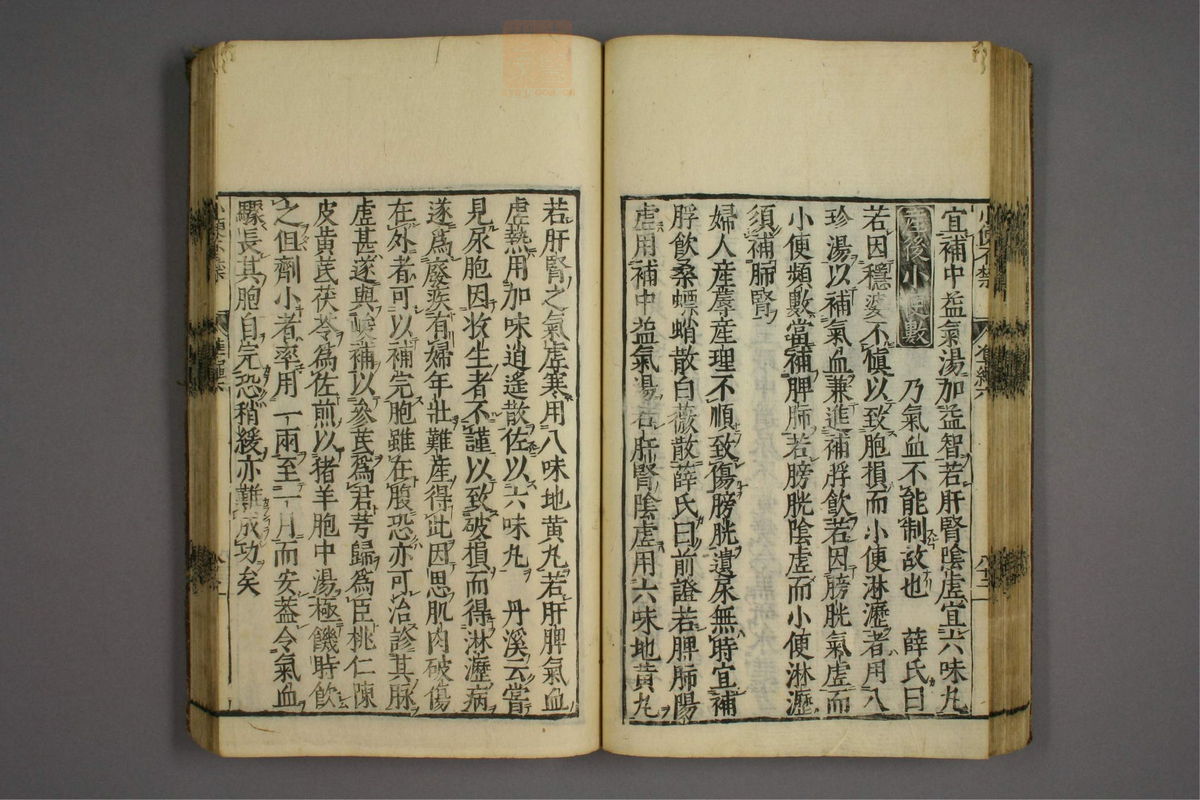 宜補中益氣湯加益智若肝腎陰虛宜六味丸
產後小便數 乃氣血不能制故也 薛氏曰
若因穩婆不愼以致胞損而小便淋瀝者用八
珍湯以補氣血兼進補脬飮若因膀胱氣虛而
小便頻數當補脾肺若膀胱陰虛而小便淋瀝
須補肺腎
婦人產蓐產理不順致傷膀胱遺尿無時宜補
脬飮桑螵蛸散白薇散薛氏曰前證若脾肺陽
虛用補中益氣湯若肝腎陰虛用六味地黃丸
若肝腎之氣虛寒用八味地黃丸若肝脾氣血
虛熱用加味逍遙散佐以六味丸 丹溪云嘗
見尿胞因收生者不謹以致破損而得淋瀝病
遂爲廢疾有婦年壯難產得此因思肌肉破傷
在外者可以補完胞雖在腹恐亦可治診其脉
虛甚遂與峻補以參芪爲君芎歸爲臣桃仁陳
皮黃芪茯苓爲佐煎以猪羊胞中湯極饑時飮
之但劑小者率用一兩至一月而安蓋令氣血
驟長其胞自完恐稍緩亦難成功矣